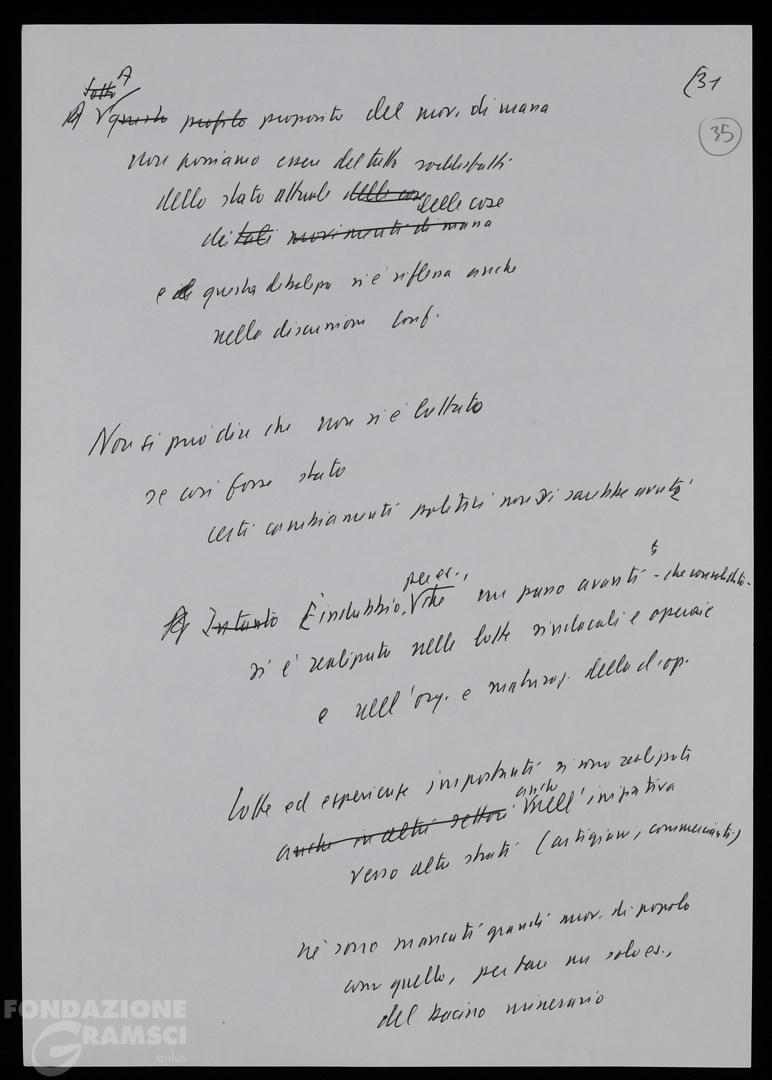 (31
35
Sotto A
questo profilo proposito del mov. di massa
non possiamo essere del tutto soddisfatti
dello stato attuale delle cose delle cose
dei tali movimenti di massa
e questa debolezza si è riflessa anche
nella discussione conf.
Non si può dire che non si è lottato
se così fosse stato
certi cambiamenti politici non si sarebbe avuti
Intanto È indubbio, per es., che un passo avanti - che consolidato -
si è realizzato nelle lotte sindacali e operaie
e nell'org. e maturaz. della cl. op.
Lotte ed esperienze importanti si sono realizzati
anche in altri settori anche nell'iniziativa
verso altri strati (artigiani, commercianti)
né sono mancati grandi mov. di popolo
com quello, per fare un solo es.,
del bacino minerario
FONDAZIONE
GRAMSCI
onlus